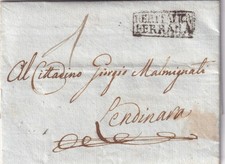 FERRARA
Al Cittadino Giorgio Malmignati
Lendinara